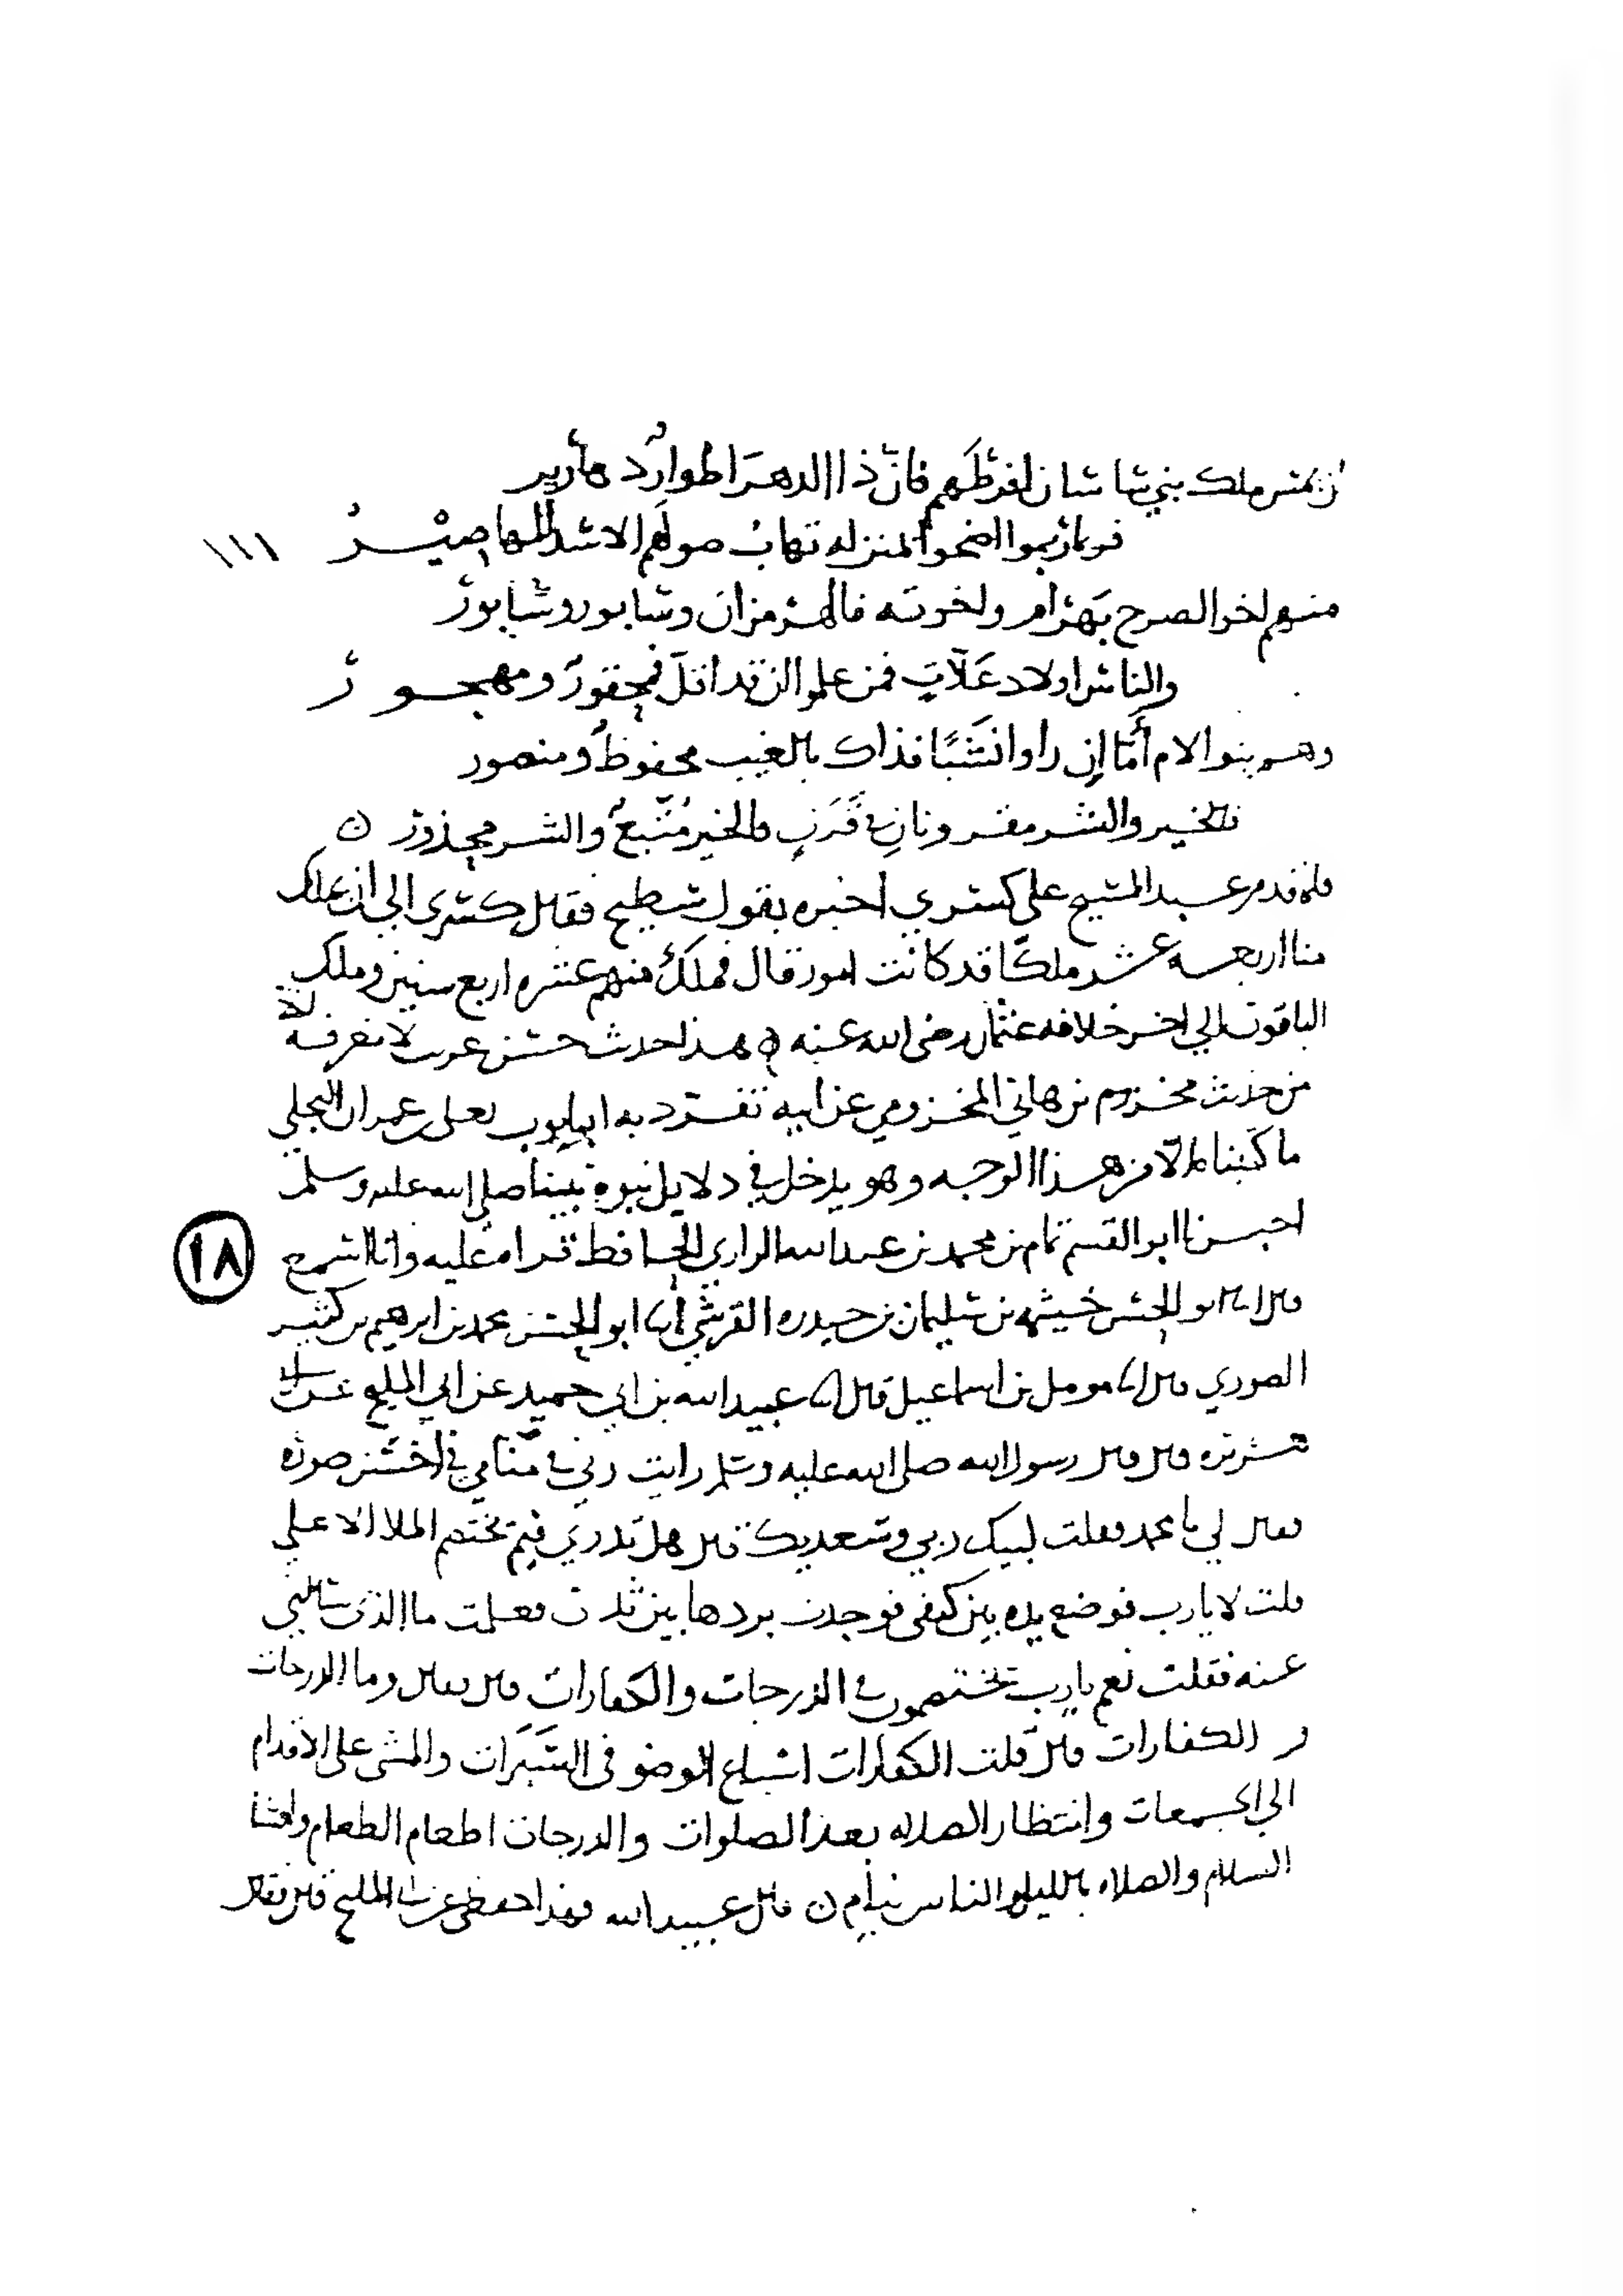 ان يمس ملك بني ساسان افرطهم فان ذا الدهر اطوار دهارير
فربما ربما اضحوا بمنزلة تهاب صولهم الاسد المهاصير
منهم اخو الصرح بهرام واخوته والهرمزان وسابور وسابور
والناس اولاد علات فمن علموا ان قد اقل فمحقور ومهجور
وهم بنو الام أما إن راوا نشبا فذاك بالغيب محفوظ ومنصور
والخير والشر مقرونان في قرن فالخير متبع والشر محذور ه
فلما قدم عبد المسيح على كسرى اخبره بقول سطيح فقال كسرى الى ان يملك
منا اربعة عشر ملكا قد كانت امور قال فملك منهم عشره اربع سنين وملك
الباقون الى اخر خلافة عثمان رضى الله عنه ه هذا حديث حسن غريب لا نعرفه الا
من حديث مخزوم بن هاني المخزومي عن ابيه تفرد به ابو ايوب يعلى بن عمران البجلي
ما كتبناه الا من هذا الوجه وهو يدخل في دلايل نبوة نبينا صلى الله عليه وسلم
اخبرنا ابو القسم تمام بن محمد بن عبد الله الرازي الحافظ قراه عليه وانا اسمع
قال انا ابو الحسن خيثمه بن سليمان بن حيدره القرشي نا ابو الحسن محمد بن ابرهيم بن كثير
الصوري قال نا مومل بن اسماعيل قال نا عبيد الله بن ابي حميد عن ابي المليح عن ابي
هريره قال قال رسول الله صلى الله عليه وسلم رايت ربي في منامي في احسن صوره
فقال لي يا محمد فقلت لبيك ربي وسعديك قال هل تدري فيم تختصم الملا الاعلي
قلت لا يارب فوضع يده بين كتفي فوجدت بردها بين ثديي فعلمت ما الذي سالني
عنه فقلت نعم يارب يختصمون في الدرجات والكفارات قال فقال وما الدرجات
و الكفارات قال قلت الكفارات اسباغ الوضو في السبرات والمشى على الاقدام
الي الجمعات وانتظار الصلاه بعد الصلوات والدرجات اطعام الطعام وافشا
السلام والصلاه بالليل والناس نيام ه قال عبيد الله فهذا حفظي عن ابي المليح قال فقال
١٨